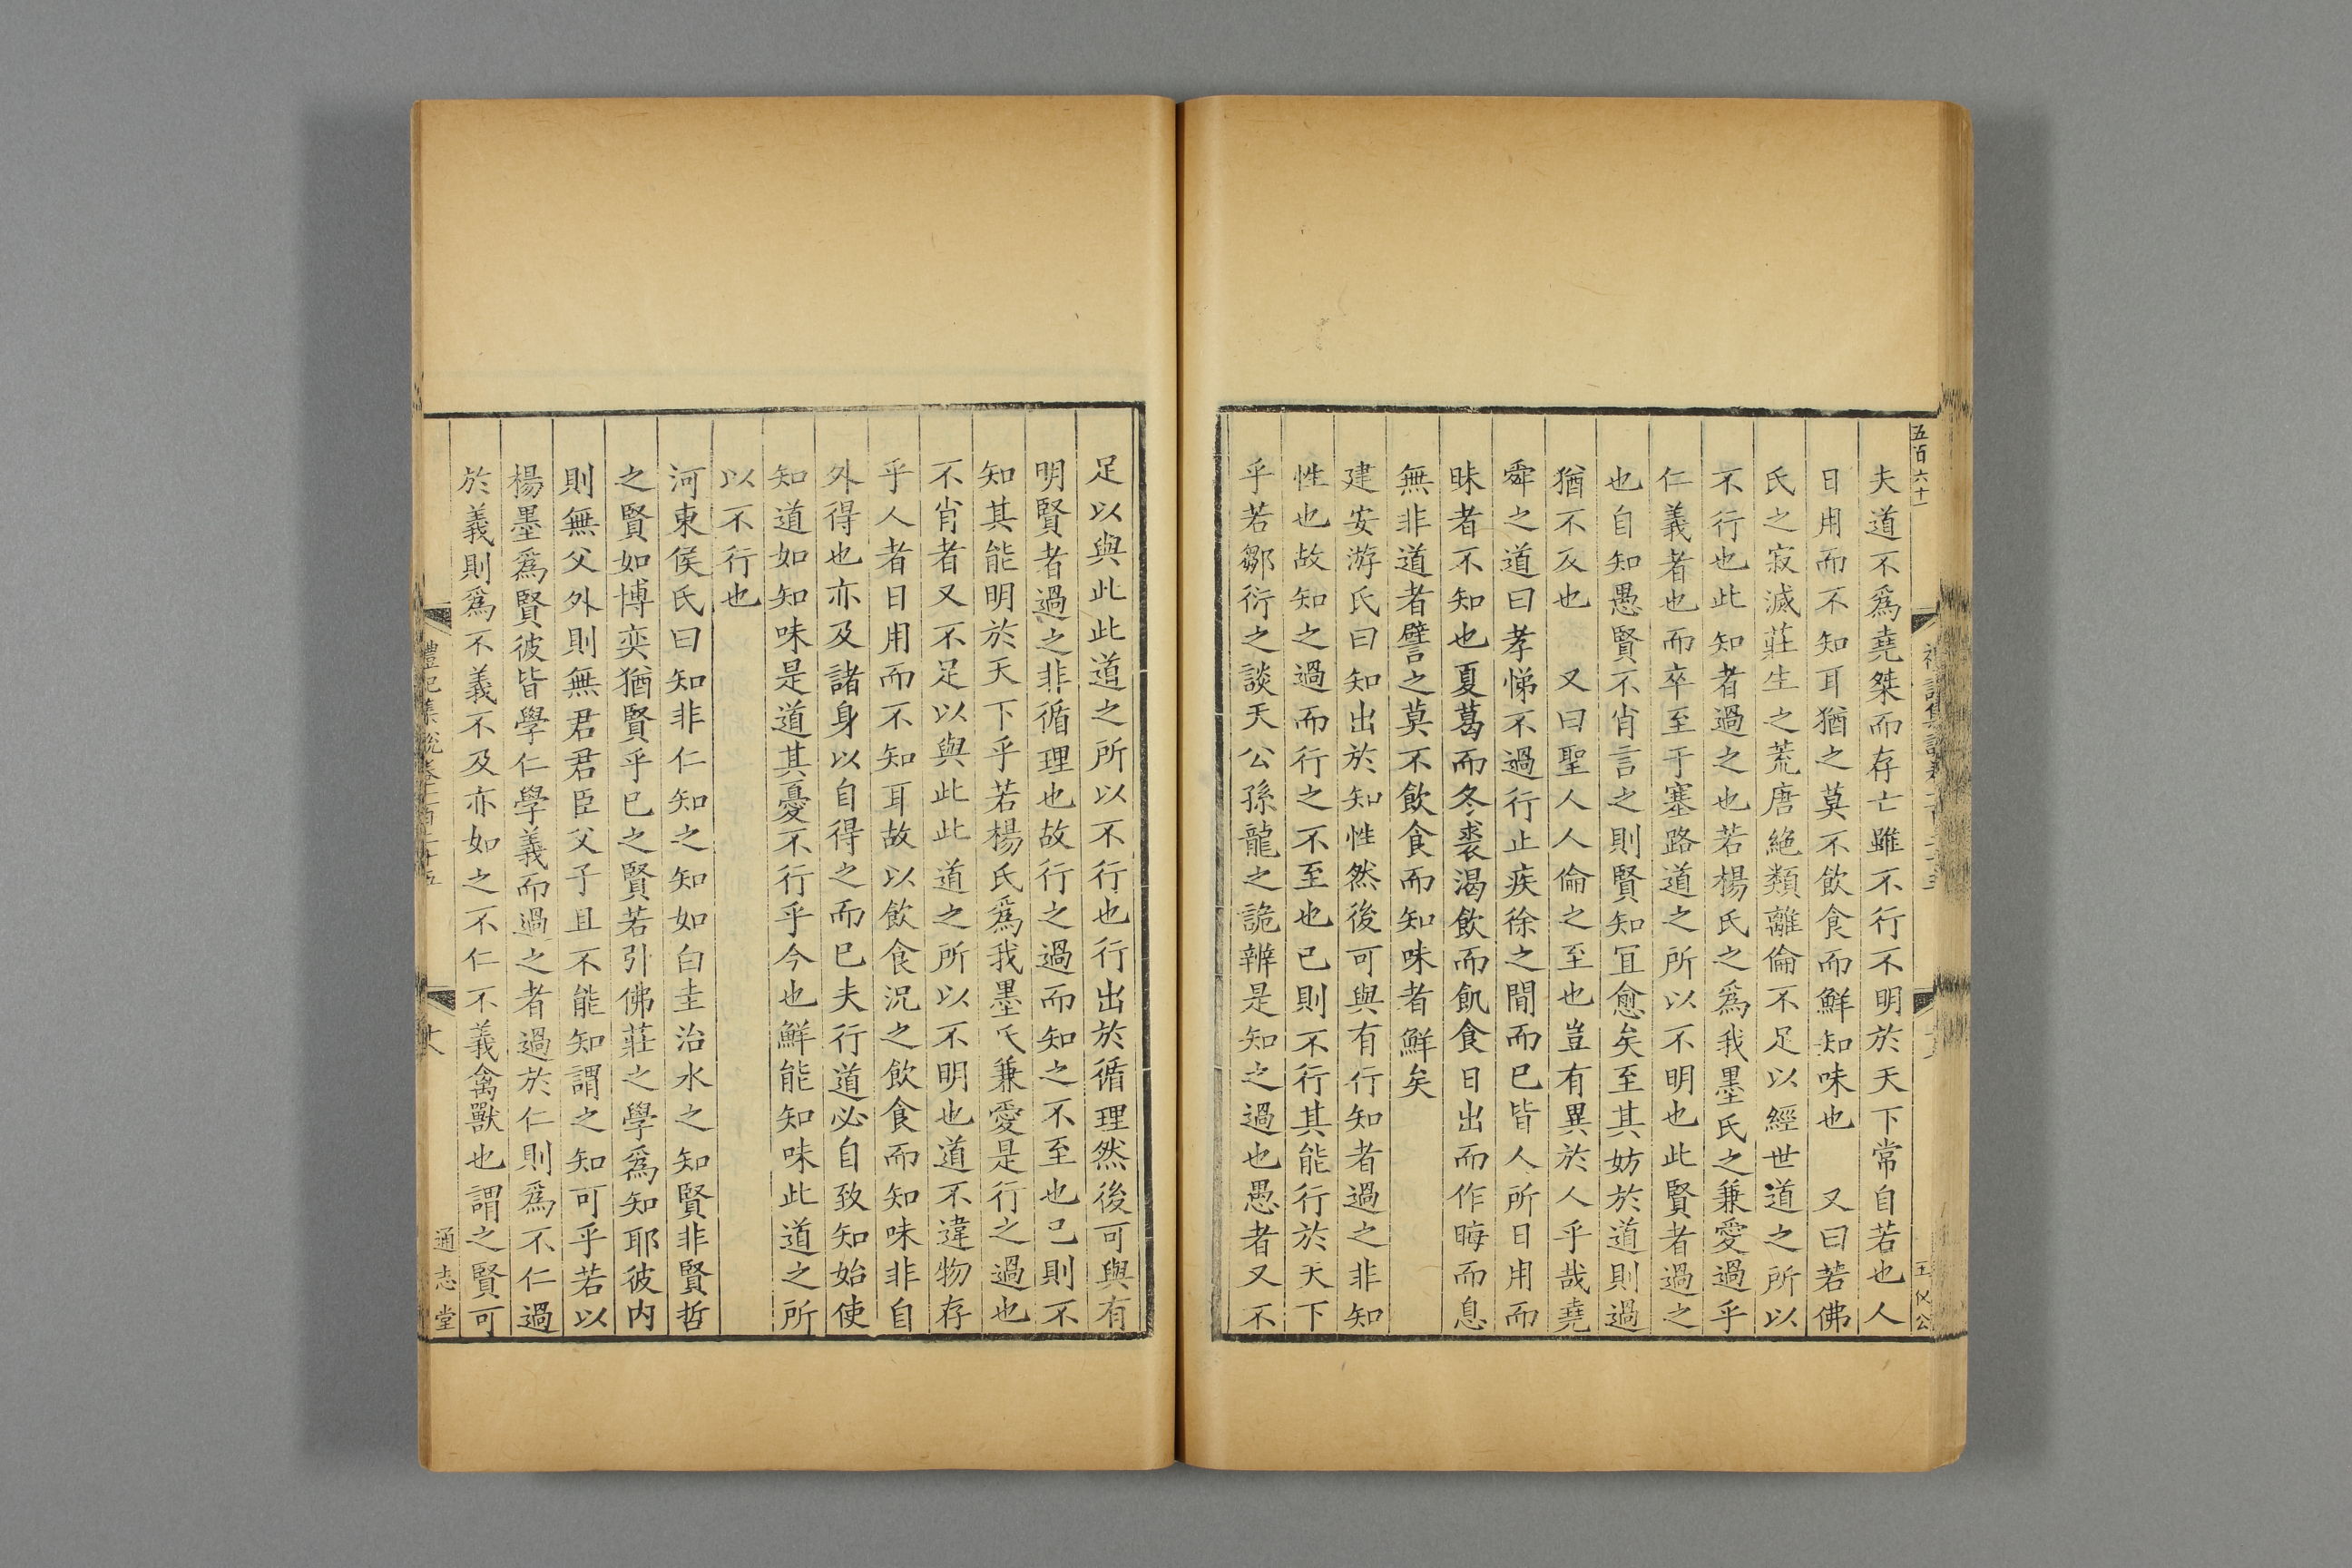 五百六十一
夫道不爲堯桀而存亡雖不行不明於天下常自若也人
日用而不知耳猶之莫不飲食而鮮知味也　又曰若佛
氏之寂滅莊生之荒唐絶類離倫不足以經世道之所以
不行也此知者過之也若楊氏之爲我墨氏之兼愛過乎
仁義者也而卒至于塞路道之所以不明也此賢者過之
也自知愚賢不肖言之則賢知冝愈矣至其妨於道則過
猶不及也　又曰聖人人倫之至也豈有異於人乎哉堯
舜之道曰孝悌不過行止疾徐之間而已皆人所日用而
昧者不知也夏葛而冬裘渴飲而飢食日出而作晦而息
無非道者譬之莫不飲食而知味者鮮矣
建安游氏曰知出於知性然後可與有行知者過之非知
性也故知之過而行之不至也己則不行其能行於天下
乎若鄒衍之談天公孫龍之詭辨是知之過也愚者又不
足以與此此道之所以不行也行出於循理然後可與有
明賢者過之非循理也故行之過而知之不至也己則不
知其能明於天下乎若楊氏爲我墨氏兼愛是行之過也
不肖者又不足以與此此道之所以不明也道不違物存
乎人者日用而不知耳故以飲食況之飲食而知味非自
外得也亦及諸身以自得之而已夫行道必自致知始使
知道如知味是道其憂不行乎今也鮮能知味此道之所
以不行也
河東侯氏曰知非仁知之知如白圭治水之知賢非賢哲
之賢如博奕猶賢乎已之賢若引佛莊之學爲知耶彼内
則無父外則無君君臣父子且不能知謂之知可乎若以
楊墨爲賢彼皆學仁學義而過之者過於仁則爲不仁過
於義則爲不義不及亦如之不仁不義禽獸也謂之賢可
禮記集說卷一百二十五
通志堂